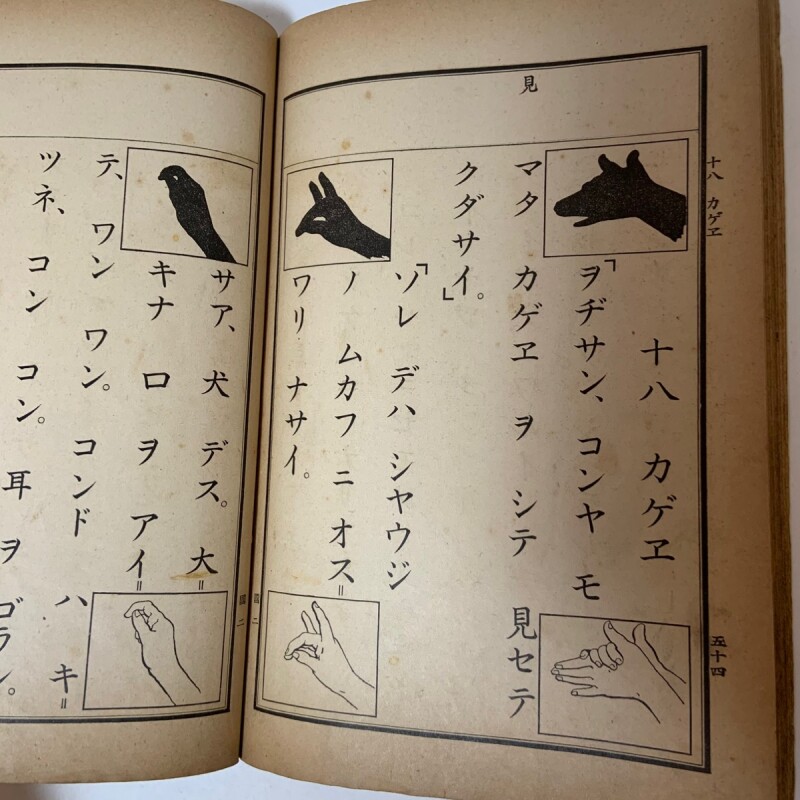 十八 カゲヱ
五十四
見
十八 カゲヱ
「ヲヂサン、コンヤ モ
マタ カゲヱ ヲ シテ 見セテ
クダサイ。」
「ソレ デハ シヤウジ
ノ ムカフ ニ オス=
ワリ ナサイ。
サア、犬 デス。大=
キナ 口 ヲ アイ=
テ、ワン ワン。コンド ハ キ=
ツネ、コン コン。耳 ヲ ゴラン。